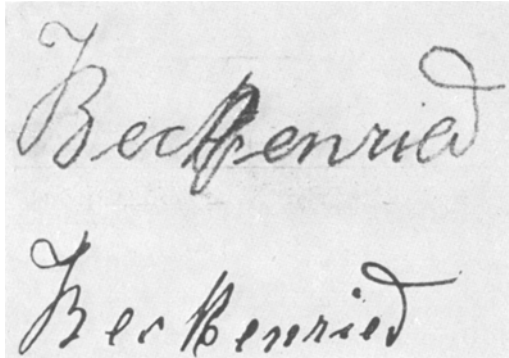 Beckenried
Beckenried